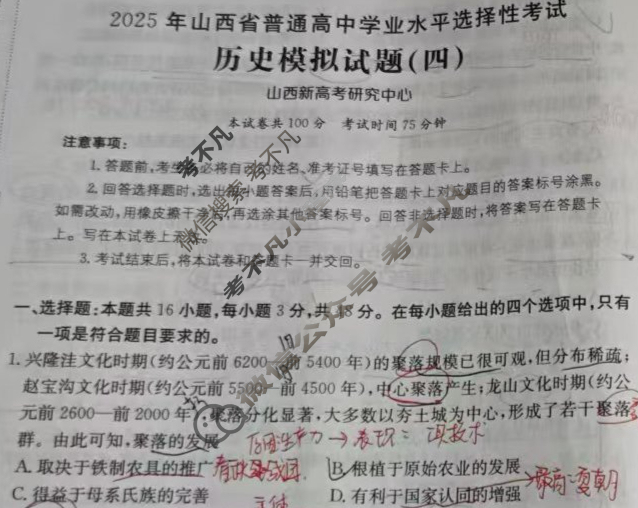 2025年山西省普通高中学业水平选择性考试
历史模拟试题(四)
山西新高考研究中心
本试卷共100分 考试时间75分钟
注意事项:
1. 答题前,考生 必将自己的姓名、准考证号填写在答题卡上。
2. 回答选择题时,选出 小题答案后,用铅笔把答题卡上对应题目的答案标号涂黑。
如需改动,用橡皮擦干净后,再选涂其他答案标号。回答非选择题时,将答案写在答题卡
上。写在本试卷上无
3. 考试结束后,将本试卷和答题卡一并交回。
一、选择题:本题共16小题,每小题3分,共48分。在每小题给出的四个选项中,只有
一项是符合题目要求的。
1. 兴隆洼文化时期(约公元前6200—前5400年)的聚落规模已很可观,但分布稀疏;
赵宝沟文化时期(约公元前5500—前4500年),中心聚落产生;龙山文化时期(约公
元前2600—前2000年),聚落分化显著,大多数以夯土城为中心,形成了若干聚落
群。由此可知,聚落的发展
生产力→表现:
技术
A. 取决于铁制农具的推广
B. 根植于原始农业的发展
C. 得益于母系氏族的完善
D. 有利于国家认同的增强
夏朝
微信搜索 考不凡
考不凡小
微信公众号 考不凡